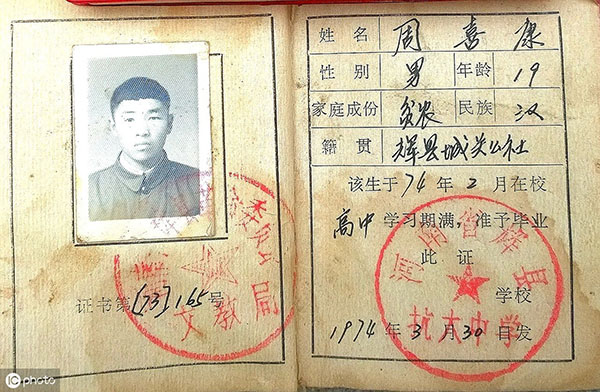 委会
文教局
证书第(73)165号
姓名 周喜康
性别 男 年龄 19
家庭成份 贫农 民族 汉
籍贯 辉县城关公社
该生于74年2月在校
高中学习期满，准予毕业
此证
河南省辉县
学校
抗大中学
1974年3月30日发
photo